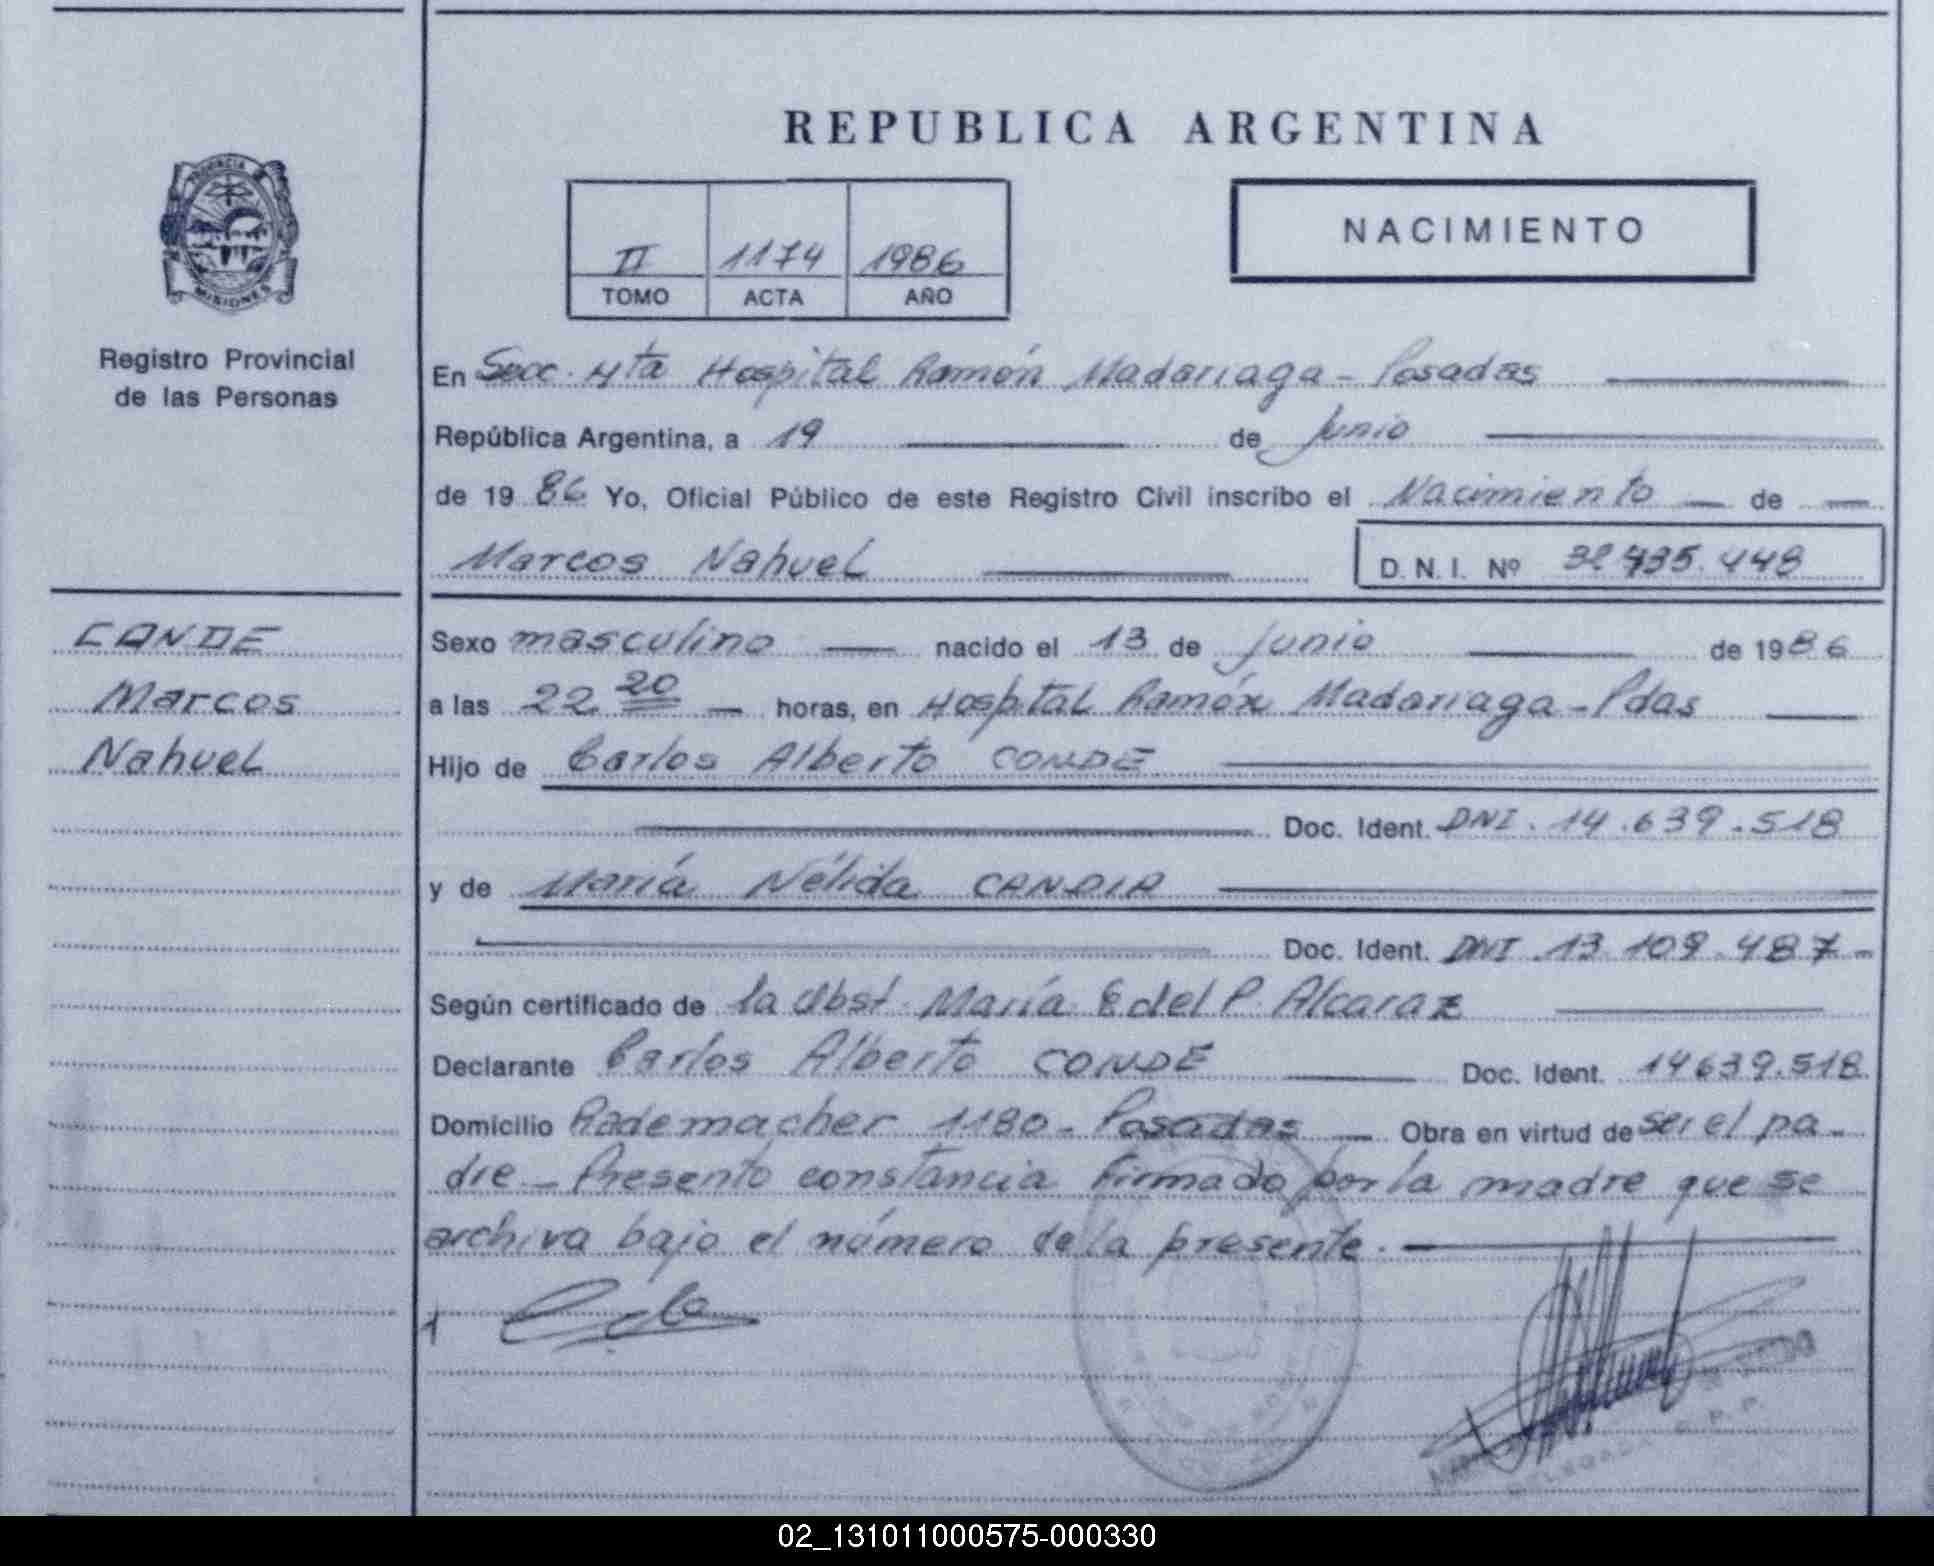 REPUBLICA ARGENTINA
PROVINCIA DE
MISIONES
Registro Provincial
de las Personas
II 1174 1986
TOMO ACTA AÑO
NACIMIENTO
En Secc. 4ta Hospital Ramón Madariaga - Posadas
República Argentina, a 19 de Junio
de 19 86 Yo, Oficial Público de este Registro Civil inscribo el Nacimiento de
Marcos Nahuel D. N. I. Nº 32.435.448
CANDE
Marcos
Nahuel
Sexo masculino nacido el 13 de Junio de 1986
a las 22 20 horas, en Hospital Ramón Madariaga - Pdas
Hijo de Carlos Alberto CONDE
Doc. Ident. DNI. 14.639.518
y de María Nélida CANDIA
Doc. Ident. DNI 13.109.487-
Según certificado de la Obst. María E del P. Alcaraz
Declarante Carlos Alberto CONDE Doc. Ident. 14639.518
Domicilio Rademacher 1180 - Posadas Obra en virtud de ser el pa-
dre - Presento constancia firmado por la madre que se
archiva bajo el número de la presente.
DELEGADA R. P. P.
02_131011000575-000330